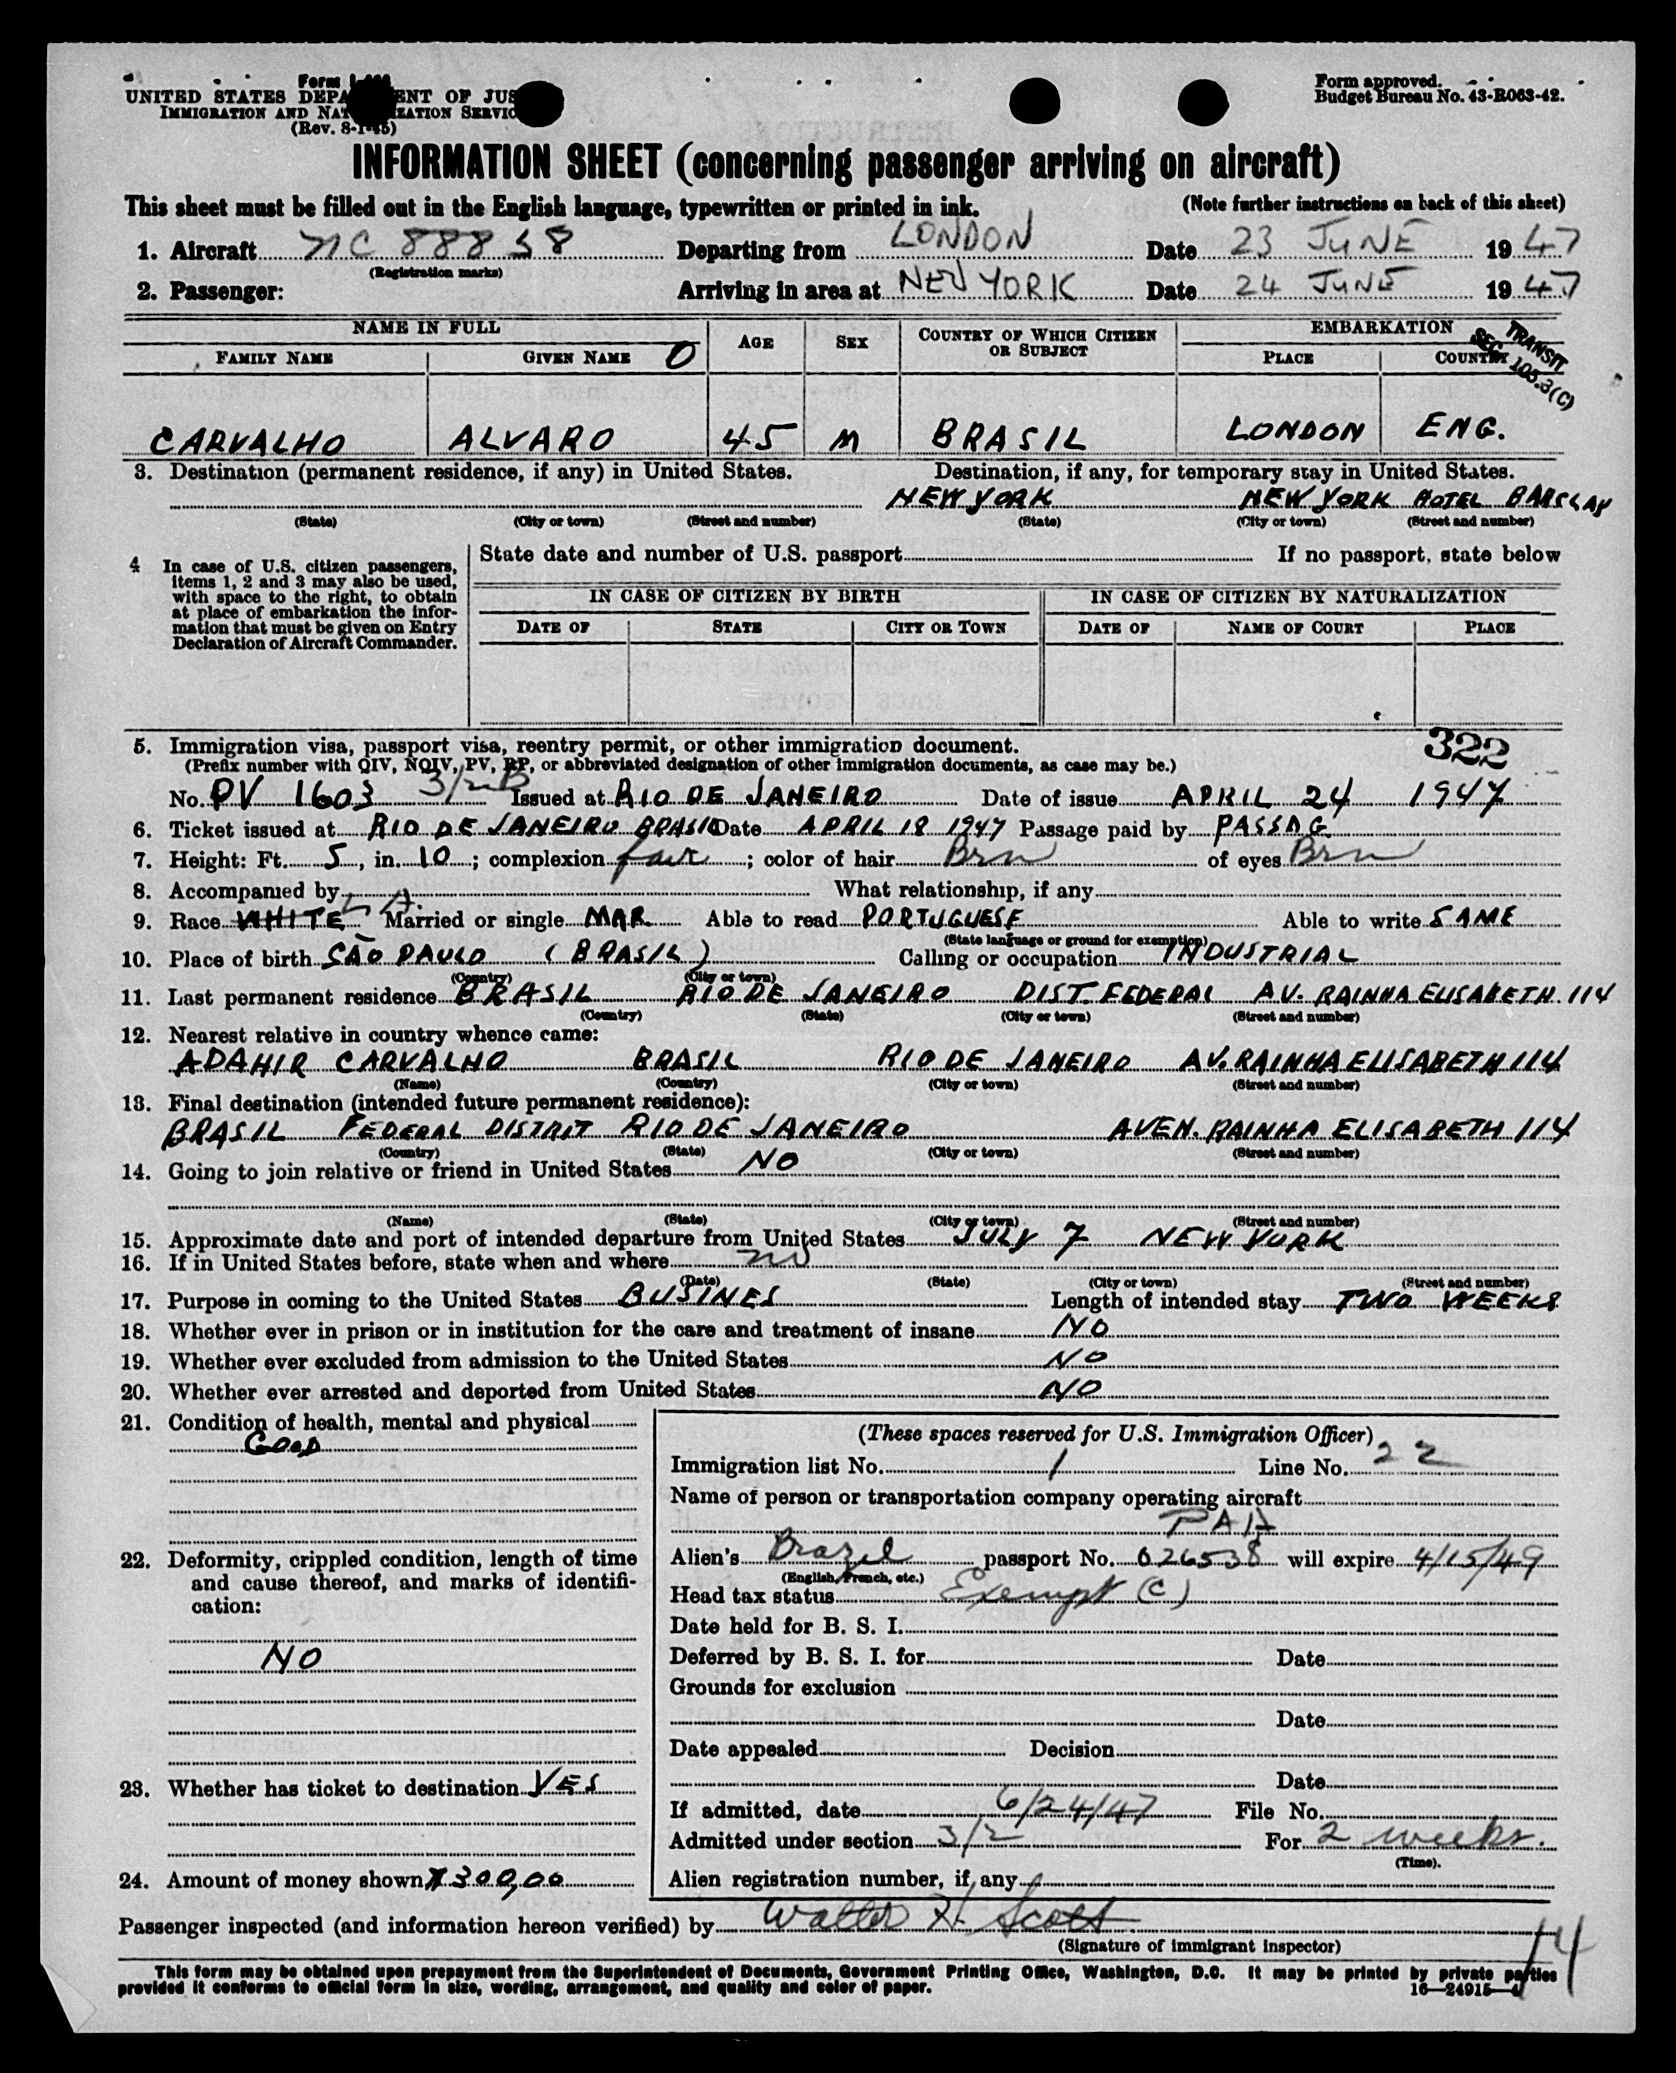 Form
UNITED STATES DEPA ENT OF JUS
IMMIGRATION AND NAT ZATION SERVIC
(Rev. 8-1-45)
Form approved.
Budget Bureau No. 43-R063-42.
INFORMATION SHEET (concerning passenger arriving on aircraft)
This sheet must be filled out in the English language, typewritten or printed in ink. (Note further instructions on back of this sheet)
1. Aircraft NC 88858 Departing from LONDON Date 23 JUNE 1947
(Registration marks)
2. Passenger: Arriving in area at NEW YORK Date 24 JUNE 1947
NAME IN FULL AGE SEX COUNTRY OF WHICH CITIZEN OR SUBJECT EMBARKATION
FAMILY NAME GIVEN NAME O PLACE COUNTRY
TRANSIT
SEC. 105.3(C)
CARVALHO ALVARO 45 M BRASIL LONDON ENG.
3. Destination (permanent residence, if any) in United States. Destination, if any, for temporary stay in United States.
NEW YORK NEW YORK HOTEL BARCLAY
(State) (City or town) (Street and number) (State) (City or town) (Street and number)
4 In case of U.S. citizen passengers, items 1, 2 and 3 may also be used, with space to the right, to obtain at place of embarkation the information that must be given on Entry Declaration of Aircraft Commander.
State date and number of U.S. passport If no passport, state below
IN CASE OF CITIZEN BY BIRTH IN CASE OF CITIZEN BY NATURALIZATION
DATE OF STATE CITY OR TOWN DATE OF NAME OF COURT PLACE
322
5. Immigration visa, passport visa, reentry permit, or other immigration document.
(Prefix number with QIV, NQIV, PV, RP, or abbreviated designation of other immigration documents, as case may be.)
No. PV 1603 3/2 B Issued at RIO DE JANEIRO Date of issue APRIL 24 1947
6. Ticket issued at RIO DE JANEIRO BRASIL Date APRIL 18 1947 Passage paid by PASSAG.
7. Height: Ft. 5, in. 10; complexion fair; color of hair Brn of eyes Brn
8. Accompanied by What relationship, if any
9. Race WHITE L A. Married or single MAR Able to read PORTUGUESE Able to write SAME
(State language or ground for exemption)
10. Place of birth SÃO PAULO (BRASIL) Calling or occupation INDUSTRIAL
(Country) (City or town)
11. Last permanent residence BRASIL RIO DE JANEIRO DIST. FEDERAL AV. RAINHA ELISABETH 114
(Country) (State) (City or town) (Street and number)
12. Nearest relative in country whence came:
ADAHIR CARVALHO BRASIL RIO DE JANEIRO AV. RAINHA ELISABETH 114
(Name) (Country) (City or town) (Street and number)
13. Final destination (intended future permanent residence):
BRASIL FEDERAL DISTRIT RIO DE JANEIRO AVEN. RAINHA ELISABETH 114
(Country) (State) (City or town) (Street and number)
14. Going to join relative or friend in United States NO
(Name) (State) (City or town) (Street and number)
15. Approximate date and port of intended departure from United States JULY 7 NEW YORK
16. If in United States before, state when and where no
(Date) (State) (City or town) (Street and number)
17. Purpose in coming to the United States BUSINES Length of intended stay TWO WEEKS
18. Whether ever in prison or in institution for the care and treatment of insane NO
19. Whether ever excluded from admission to the United States NO
20. Whether ever arrested and deported from United States NO
21. Condition of health, mental and physical
GOOD
22. Deformity, crippled condition, length of time and cause thereof, and marks of identification:
NO
23. Whether has ticket to destination YES
24. Amount of money shown $300,00
(These spaces reserved for U.S. Immigration Officer)
Immigration list No. 1 Line No. 22
Name of person or transportation company operating aircraft
PAA
Alien's Brazil passport No. 026538 will expire 4/15/49
(English, French, etc.)
Head tax status Exempt (C)
Date held for B. S. I.
Deferred by B. S. I. for Date
Grounds for exclusion
Date
Date appealed Decision
Date
If admitted, date 6/24/47 File No.
Admitted under section 3/2 For 2 weeks.
(Time).
Alien registration number, if any
Passenger inspected (and information hereon verified) by Walter H Scott
(Signature of immigrant inspector)
14
This form may be obtained upon prepayment from the Superintendent of Documents, Government Printing Office, Washington, D.C. It may be printed by private parties
provided it conforms to official form in size, wording, arrangement, and quality and color of paper. 16—24915—